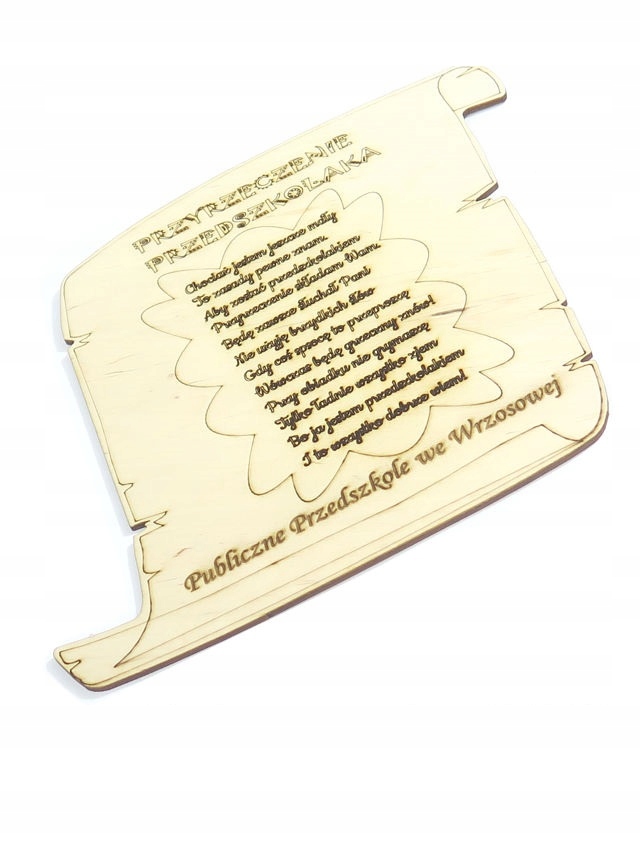 PRZYRZECZENIE
PRZEDSZKOLAKA
Chociaż jestem jeszcze mały
To zasady pewne znam.
Aby zostać przedszkolakiem
Przyrzeczenie składam Wam.
Będę zawsze słuchał Pani
Nie użyję brzydkich słów
Gdy coś zpsocę to przeproszę
Wówczas będę grzeczny znów!
Przy obiadku nie grymaszę
Tylko ładnie wszystko zjem
Bo ja jestem przedszkolakiem
I to wszystko dobrze wiem!
Publiczne Przedszkole we Wrzosowej